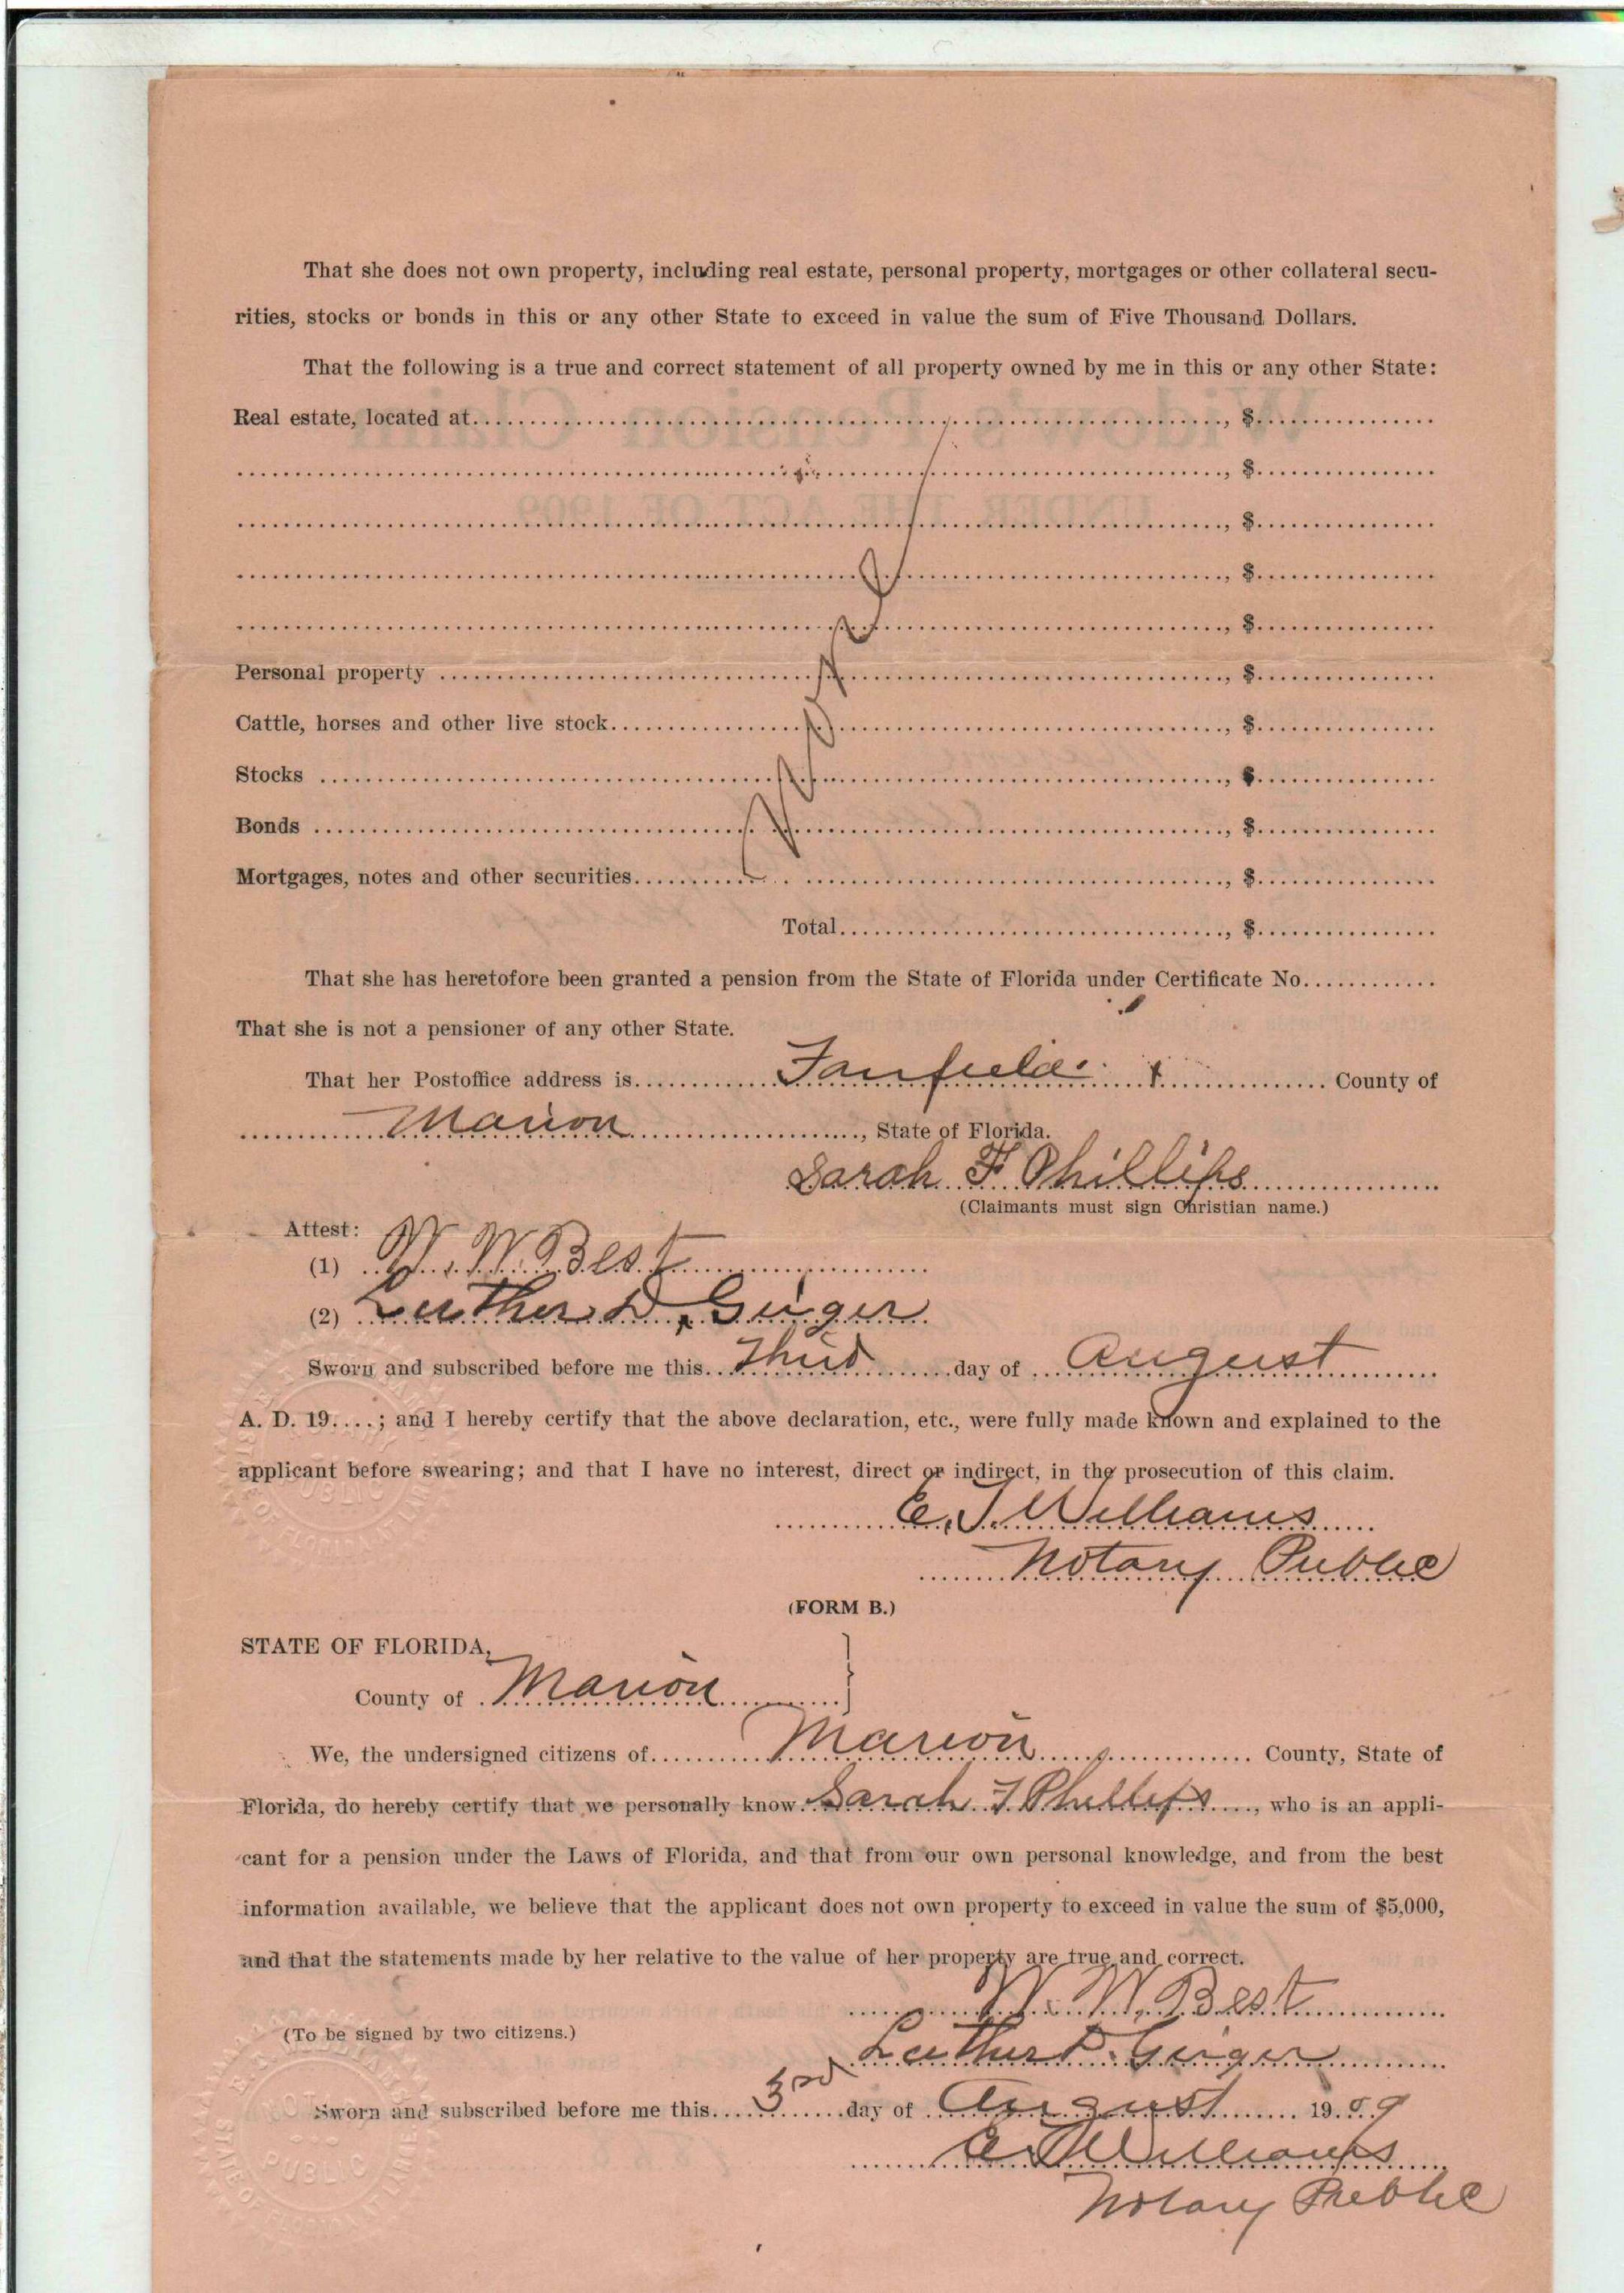 That she does not own property, including real estate, personal property, mortgages or other collateral secu-
rities, stocks or bonds in this or any other State to exceed in value the sum of Five Thousand Dollars.
That the following is a true and correct statement of all property owned by me in this or any other State:
Real estate, located at......, $......
......, $......
......, $......
......, $......
......, $......
Personal property ......, $......
Cattle, horses and other live stock......, $......
Stocks ......, $......
Bonds ......, $......
Mortgages, notes and other securities......, $......
Total......, $......
That she has heretofore been granted a pension from the State of Florida under Certificate No............
That she is not a pensioner of any other State.
That her Postoffice address is...... ...... County of
Marion ......, State of Florida.
Sarah F Phillips
(Claimants must sign Christian name.)
Attest:
(1) W. W. Best
(2) Luther D. Geiger
Sworn and subscribed before me this..Third......day of ...August......
A. D. 19....; and I hereby certify that the above declaration, etc., were fully made known and explained to the
applicant before swearing; and that I have no interest, direct or indirect, in the prosecution of this claim.
E. T. Williams
Notary Public
(FORM B.)
STATE OF FLORIDA,
County of Marion
We, the undersigned citizens of......Marion...... County, State of
Florida, do hereby certify that we personally know Sarah F Phillips...., who is an appli-
cant for a pension under the Laws of Florida, and that from our own personal knowledge, and from the best
information available, we believe that the applicant does not own property to exceed in value the sum of $5,000,
and that the statements made by her relative to the value of her property are true and correct.
W. W. Best
(To be signed by two citizens.)
Luther D. Geiger
Sworn and subscribed before me this....3rd....day of ..August...... 19.09
E T Williams
Notary Public
NOTARY
PUBLIC